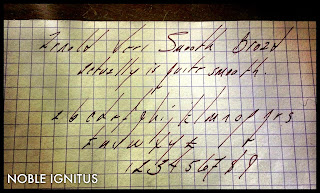 Very Smooth Broad
actually is quite smooth.
a b c d e f g h i j k l m n o p q r s
t u v w x y z
1 2 3 4 5 6 7 8 9
NOBLE IGNITUS